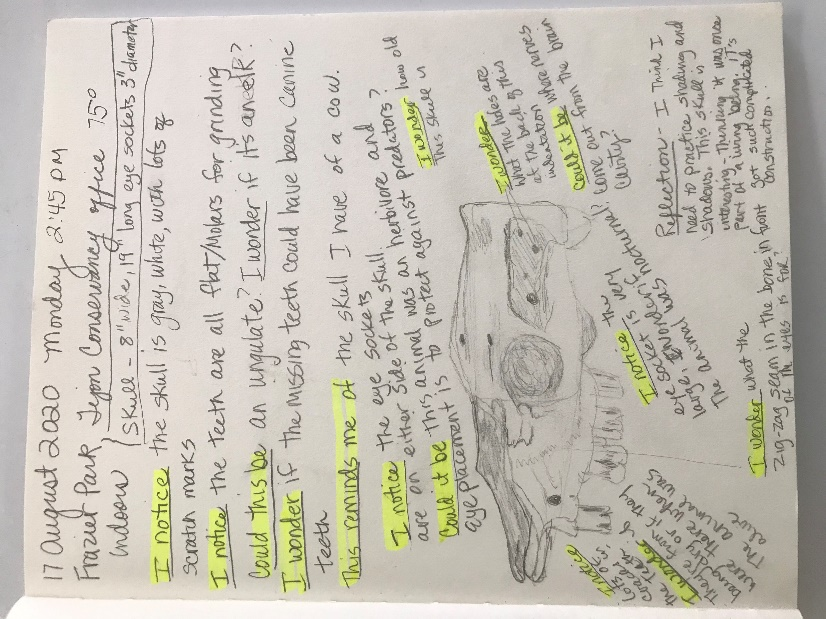 17 August 2020 Monday 2:45 PM
Frazier Park, Tejon Conservancy office 75°
Indoors
Skull - 8" wide, 19" long eye sockets 3" diameter
I notice the skull is gray, white, with lots of
scratch marks
I notice the teeth are all flat/Molars for grinding
Could this be an ungulate? I wonder if it's an elk?
I wonder if the missing teeth could have been canine
teeth
This reminds me of the skull I have of a cow.
I notice the eye sockets
are on either side of the skull
Could it be this animal was an herbivore and
eye placement is to protect against predators?
I wonder how old
This skull is
I wonder
what the holes are
at the back of this
indentation where nerves
could it be
come out from the brain
cavity?
I notice the
eye socket is very
large, I wonder if
The animal was
nocturnal?
Reflection - I Think I
need to practice shading and
shadows. This skull is
interesting - Thinking it was once
part of a living being. it's
got such complicated
construction..
I wonder what the
zig-zag seam in the bone in front
of the eyes is for?
I notice
lots of
cracks in
the teeth
I wonder if
They're from
being dry or if they
were There when
The animal was
alive